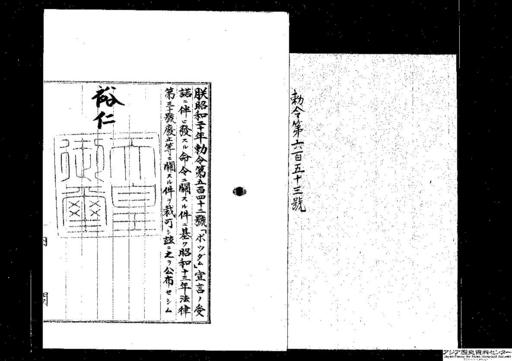 勅令第六百五十三號
朕昭和二十年勅令第五百四十二號「ポツダム」宣言ノ受
諾ニ伴ヒ發スル命令ニ關スル件ニ基ク昭和十三年法律
第三十號廢止等ニ關スル件ヲ裁可シ茲ニ之ヲ公布セシム
裕仁
天皇御璽
内閣
アジア歴史資料センター